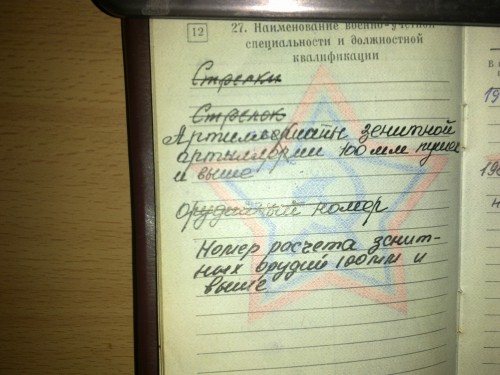 12
27. Наименование военно-учетной
специальности и должностной
квалификации
Стрелки
Стрелок
Артиллерист зенитной
артиллерии 100 мм пушек
и выше
Орудийный номер
Номер расчета зенит-
ных орудий 100 мм и
выше
в а
19
198
н